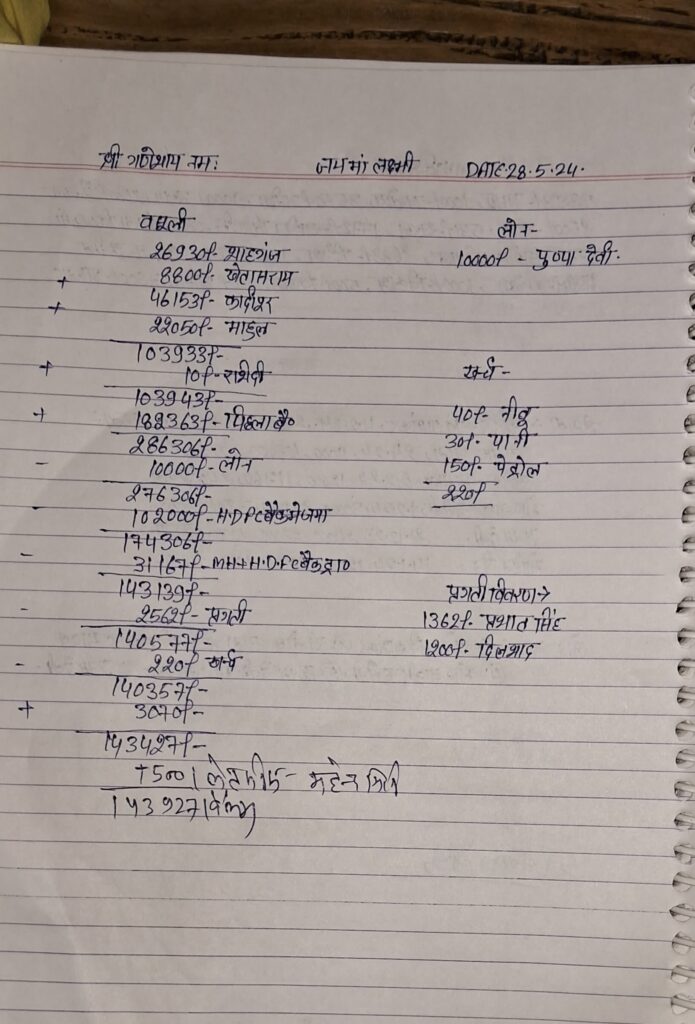 श्री गणेशाय नमः जय मां लक्ष्मी DATE.28.5.24.
वसूली
26930/- शाहगंज
+ 8800/- खेतासराय
+ 46153/-
22050/- माहुल
103933/-
+ 10/-
103943/-
+ 182363/- पिछला बै०
286306/-
- 10000/- लोन
276306/-
- 102000/- H.DFC बैंक में जमा
174306/-
- 31167/- MH+H.D.FC बैंक ड्रा०
143139/-
- 2562/- प्रगती
140577/-
- 220/ खर्च
140357/-
+ 3070/-
143427/-
+500/ महेन्द्र
143927/
लोन-
10000/- पुष्पा देवी.
खर्च-
40/- नीबू
30/- पानी
150/- पेट्रोल
220/
प्रगती विवरण→
1362/- प्रशांत सिंह
1200/- दिलशाद